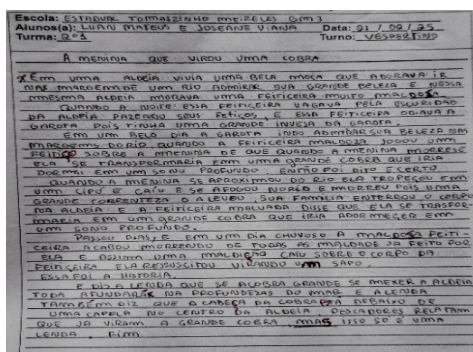 Escola: ESTADUAL TOMASZINHO MEIRELES GM3
Alunos(a): LUAN MATEUS E JOSEANE VIANA Data: 21 / 02 / 25
Turma: 2º1 Turno: VESPERTINO
A MENINA QUE VIROU UMA COBRA
EM UMA ALDEIA VIVIA UMA BELA MOÇA QUE ADORAVA IR
NAS MARGEM DE UM RIO ADMIRAR SUA GRANDE BELEZA E NESSA
MMESMA ALDEIA MORAVA UMA FEITICEIRA MUITO MALDOSA
QUANDO A NOITE ESSA FEITICEIRA VAGAVA PELA ESCURIDÃO
DA ALDEIA FAZENDO SEUS FEITIÇOS E ESSA FEITICEIRA ODIAVA A
GAROTA POIS TINHA UMA GRANDE INVEJA DA GAROTA.
EM UM BELO DIA A GAROTA INDO ADMIRAR SUA BELEZA NAS
MARGEMS DO RIO QUANDO A FEITICEIRA MALDOSA JOGOU UMM
FEITIÇO SOBRE A MMENINA DE QUE QUANDO A MENINA MORRESE
ELA SE TRANSFORMARIA EM UMA GRANDE COBRA QUE IRIA
DORMI EM UM SONO PROFUNDO DITO FOI DITO CERTO
QUANDO A MENINA SE APROXIMOU DO RIO ELA TROPEÇOU EM
UM CIPÓ E CAIU E SE AFOGOU NO RIO E MORREU POIS UMMA
GRANDE CORRENTEZA O LEVOU, SUA FAMILIA ENTERROU O CORPO
NA ALDEIA E A FEITICEIRA MALVADA DISSE QUE ELA SE TRASFOR
MARIA EM UMM GRANDE COBRA QUE IRIA ADORMECER EM
UM SONO PROFUNDO.
PASSOU DIAS, E EM UM DIA CHUVOSO A MALDOSA FEITI-
CEIRA ACABOU MORRENDO DE TODAS AS MALDADE JÁ FEITO POR
ELA E ASSIMM UMMA MALDIÇÃO CAIU SOBRE O CORPO DA
FEITICEIRA ELA RESSUSCITOU VIRANDO UM SAPO
ESSA FOI A HISTORIA.
E DIZ A LENDA QUE SE ACOBRA GRANDE SE MEXER A ALDEIA
TODA AFUNDARÁ NA PROFUNDEZAS DO MAR E A LENDA
TAMBÉM DIZ QUE O CABEÇA DA COBRA DEBAIXO DE
UMA CAPELA NO CENTRO DA ALDEIA, PESCADORES RELATAM
QUE JÁ VIRAM A GRANDE COBRA MAS ISSO SO É UMA
LENDA. FIM